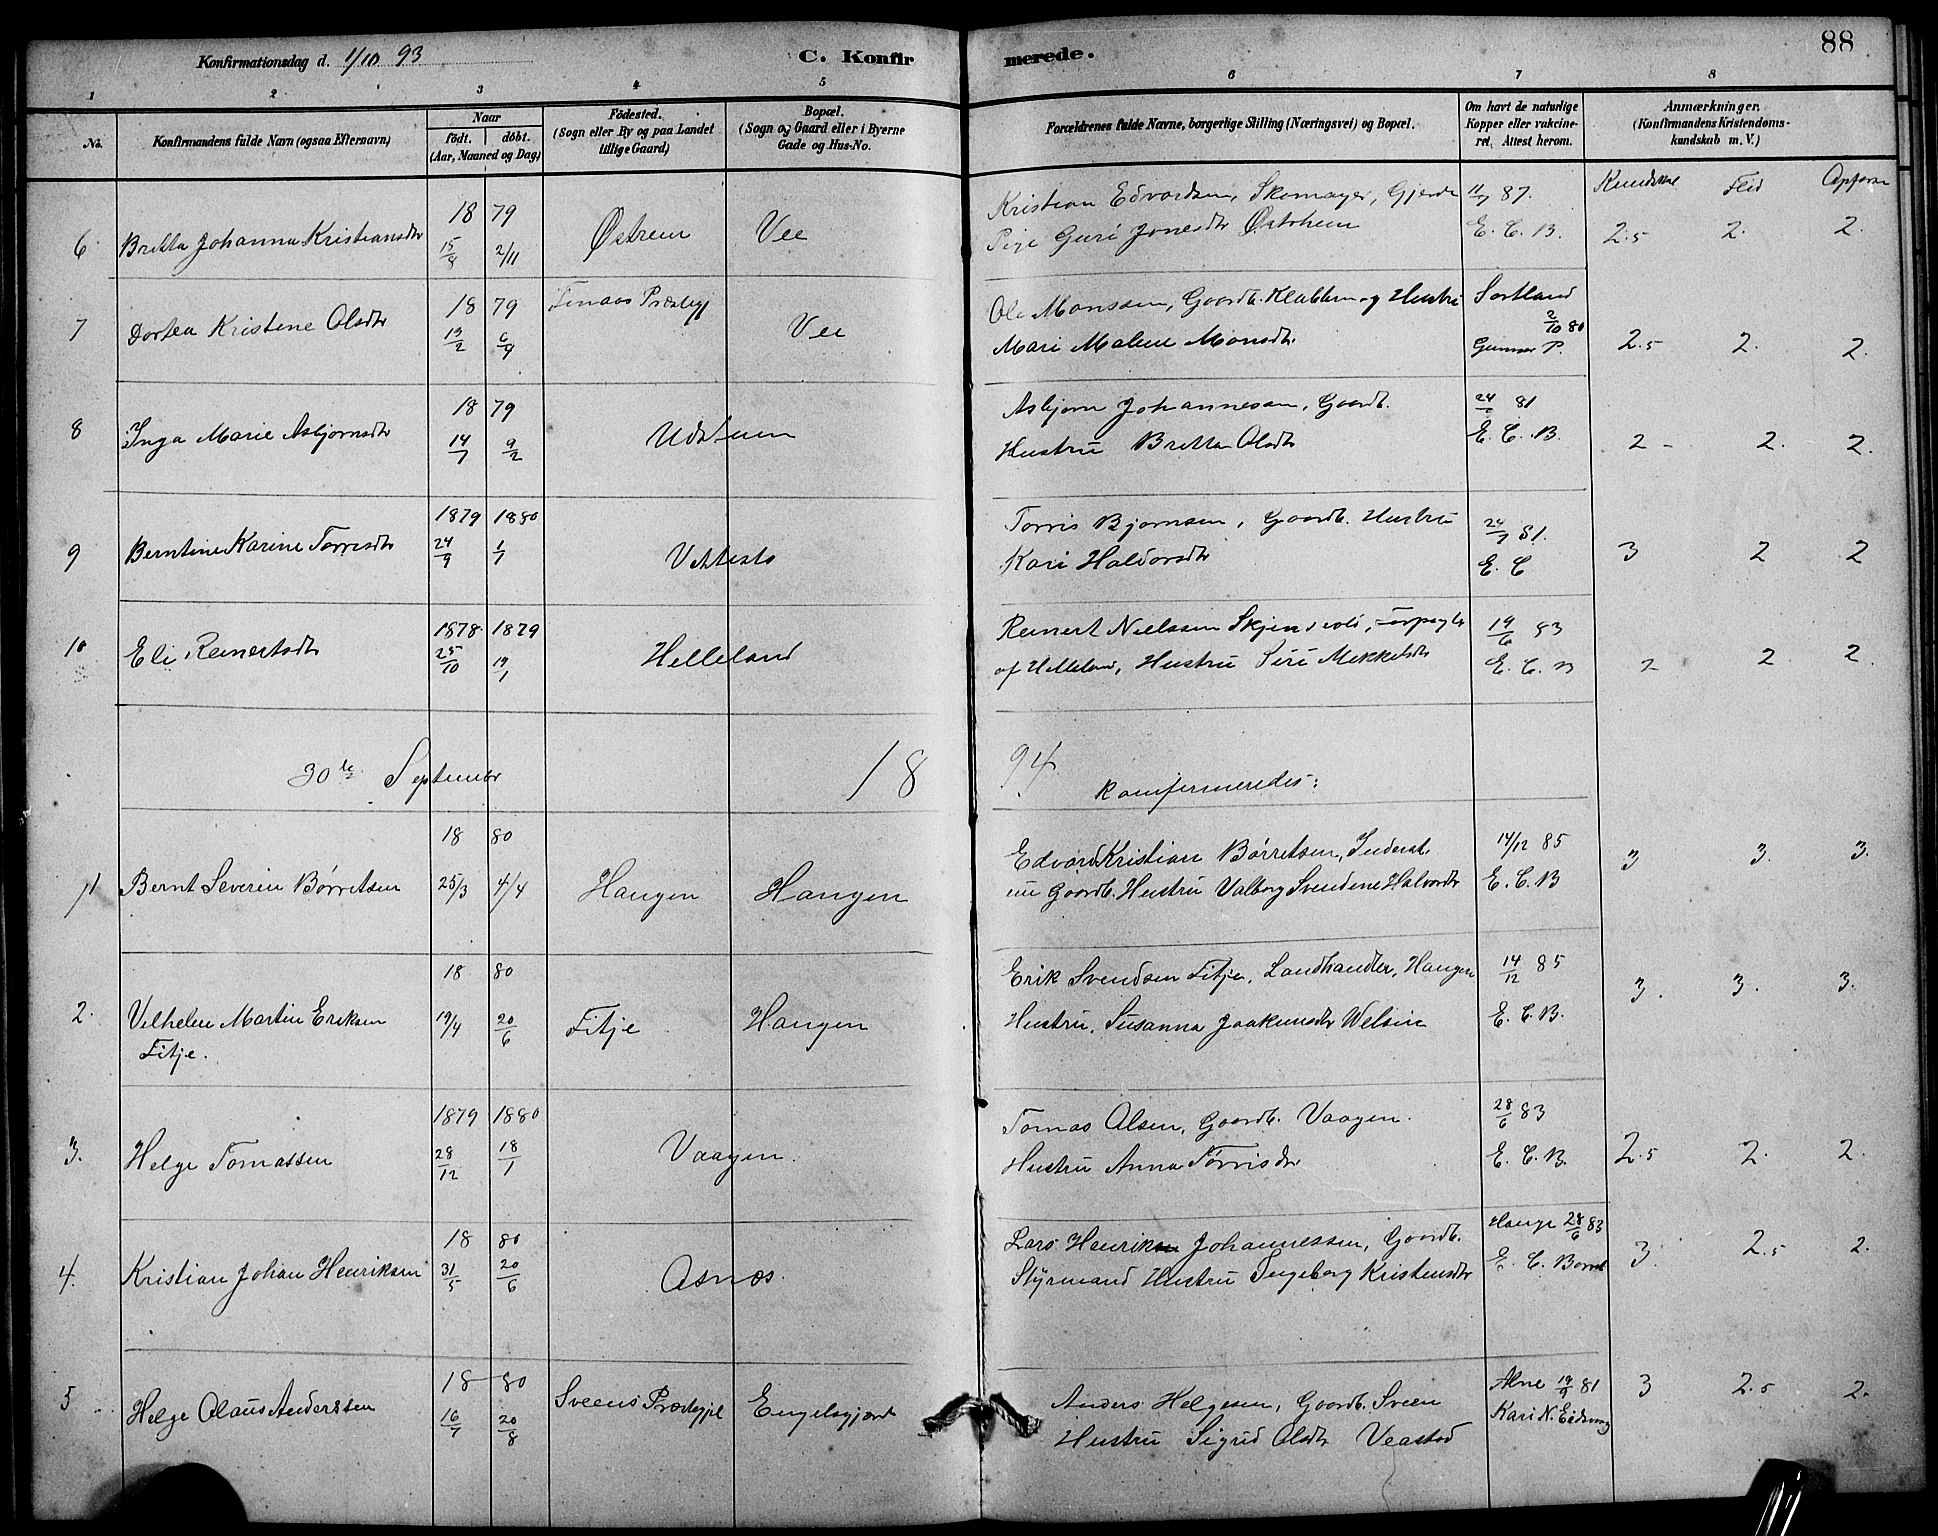 88
Konfirmationsdag d. 1/10 93
C. Konfirmerede.
1 2 3 4 5 6 7 8
No.
Konfirmandens fulde Navn (ogsaa Efternavn)
Naar
födt. döbt.
(Aar, Maaned og Dag)
Födested.
(Sogn eller By og paa Landet
tillige Gaard)
Bopæl.
(Sogn og Gaard eller i Byerne
Gade og Hus-No.
Forældrenes fulde Navne, borgerlige Stilling (Næringsvei) og Bopæl.
Om havt de naturlige
Kopper eller vakcine-
ret. Attest herom.
Anmærkninger.
(Konfirmandens Kristendoms-
kundskab m. V.)
Flid
6 Britta Johanna Kristiansdtr 18 79 15/8 2/11 Østrem Vee
Kristian Edvardsen, Skomager, Gjerde
Pige Guri Jonesdtr Østrhem
87.
E. C. B.
2.5 2. 2.
7 Dortea Kristine Olsdtr 18 79 19/2 6/4 Vee
Ole Monssen, Gaardb. og Hustru
Mari Malene Monsdtr
Sortland
2/10 80
Gunnar P.
2.5 2. 2.
8 Inga Marie Asbjørnsdtr 18 79 14/7 9/2 Udstuen
Asbjørn Johannesen, Gaardb.
Hustru Britta Olsdtr
81
E. C. B.
2 - 2. 2.
9 Berntine Karine Torrisdtr 1879 1880 24/9 1/1
Torris Bjørnsen, Gaardb. Hustru
Kari Haldorsdtr
24/7 81.
E. C
3 2 2
10 Eli Reinertsdtr 1878 1879 25/10 19/1 Helleland
Reinert Nielssen
af Helleland, Hustru Siri Mikkelsdtr
19/6 83
E. C. B
2 2 2.
30te September 18 94 komfirmeredes:
1 Bernt Severin Børretsen 18 80 25/3 4/4 Haugen Haugen
Edvard Kristian Børretsen,
Gaardb. Hustru Valborg Svendine Halvordtr
14/12 85
E. C. B
3 3. 3.
2. Vilhelm Martin Eriksen
Fitje.
18 80 19/4 20/6 Fitje Haugen
Erik Svendsen Fitje, Landhandler, Haugen
Hustru, Susanna Joakimsdtr Welsin
14/12 85
E. C. B.
3. 3. 3.
3. Helge Tomassen 1879 1880 28/12 18/1 Vaagen.
Tomas Olsen, Gaardb. Vaagen.
Hustru Anna Tørrisdtr
28/6 83
E. C. B.
2.5 2. 2.
4. Kristian Johan Henriksen 18 80 31/5 20/6 Asnæs.
Lars Henrik Johannessen, Gaardb.
Styrmand Hustru Ingeborg Kristensdtr
Hauge 28/6 83
E. C. Borret
3. 2.5 2.
5 Helge Olaus Anderssen 18 80 16/7 20/8 Sveens Præstegjel Engelsgjerd
Anders Helgesen, Gaardb. Sveen
Hustru Sigrid Olsdtr Veastad
Alne 19/9 81
Kari N. Eidsvaag
3 2.5 2.